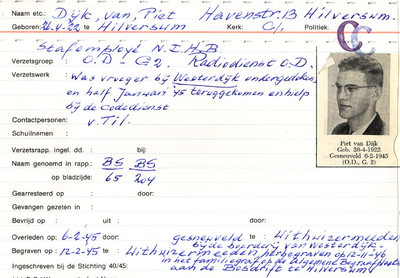 Naam etc.: Dijk, van, Piet Havenstr. 13 Hilversum.
Geboren: 26-4-22 te Hilversum Kerk: C/1 Politiek.
CC
Stafemployé N.I.H.B
Verzetsgroep : O.D - G2. Radiodienst O.D.
Verzetswerk : Was vroeger bij Westerdijk ondergedoken
en half Januari '45 teruggekomen en hielp
bij de Codedienst
Contactpersonen: v. Til.
Schuilnaam :
Piet van Dijk
Geb. 26-4-1922
Gesneuveld 6-2-1945
(O.D., G. 2)
Verzetsrapp. ingel. dd. : bij:
Naam genoemd in rapp.: BS BS
op bladzijde: 65 204
Gearresteerd op : door:
Gevangen gezeten in :
Bevrijd op : uit : door:
Overleden op: 6-2-'45 door: gesneuveld te Uithuizermeeden
bij de boerderij van Westerdijk.
Begraven op : 12-2-'45 te Uithuizermeeden, herbegraven op 12-11-46
in het familiegraf op de Algemene Begraafplaats
Ingeschreven bij de Stichting 40/45: aan de Bosdrift te Hilversum